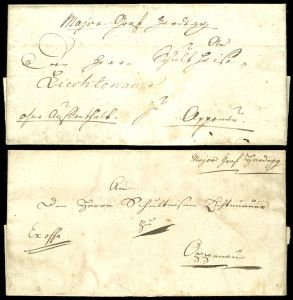 Major Graf Hardegg
An
Den Herrn Schultheiß
Liechtenauer
zu
Oppenau
Major Graf Hardegg
An
Den Herrn Schultheisen Lichtenauer
Ex offo
zu
Oppenau